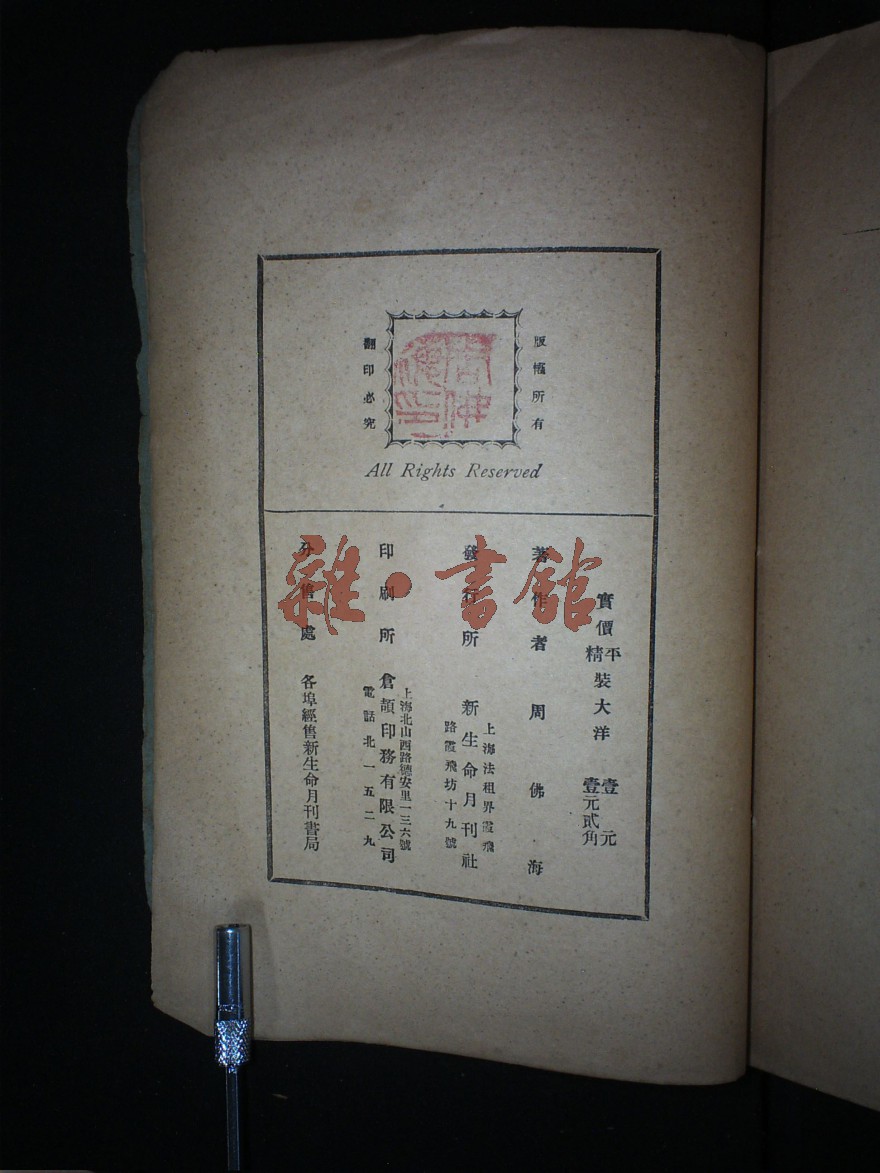 版權所有
翻印必究
All Rights Reserved
實價 平裝大洋 壹元
精裝大洋 壹元貳角
著作者 周佛海
發行所 新生命月刊社
上海法租界霞飛
路霞飛坊十九號
印刷所 倉頡印務有限公司
上海北山西路德安里一三六號
電話北一五二九
分售處 各埠經售新生命月刊書局
雜·書館